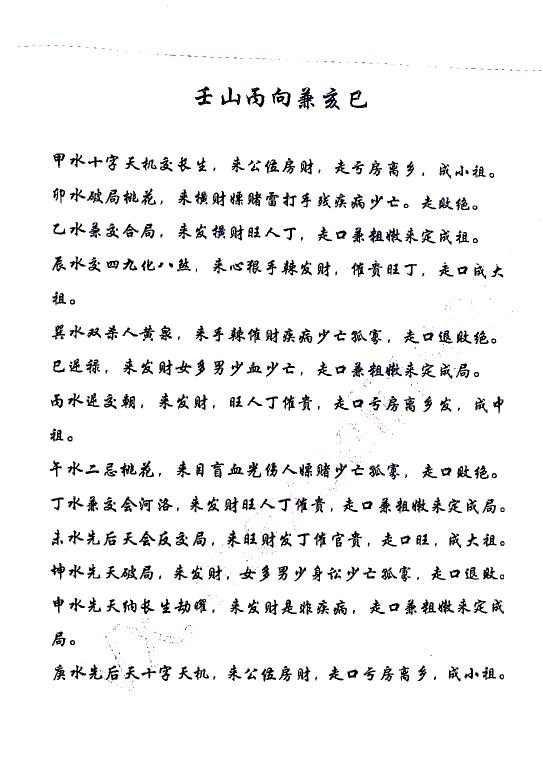 壬山丙向兼亥巳
甲水十字天机交长生，来公位房财，走亏房离乡，成小祖。
卯水破局桃花，来横财嫖赌雷打手残疾病少亡。走败绝。
乙水兼交合局，来发横财旺人丁，走口兼粗嫩来定成祖。
辰水交四九化八煞，来心狠手辣发财，催贵旺丁，走口成大
祖。
巽水双杀人黄泉，来手辣催财疾病少亡孤寡，走口退败绝。
巳逆禄，来发财女多男少血少亡，走口兼粗嫩来定成局。
丙水逆交朝，来发财，旺人丁催贵，走口亏房离乡发，成中
祖。
午水二忌桃花，来目盲血光伤人嫖赌少亡孤寡，走口败绝。
丁水兼交会河洛，来发财旺人丁催贵，走口兼粗嫩来定成局。
未水先后天会反交局，来旺财发丁催官贵，走口旺，成大祖。
坤水先天破局，来发财，女多男少身讼少亡孤寡，走口退败。
申水先天纳长生劫曜，来发财是非疾病，走口兼粗嫩来定成
局。
庚水先后天十字天机，来公位房财，走口亏房离乡，成小祖。